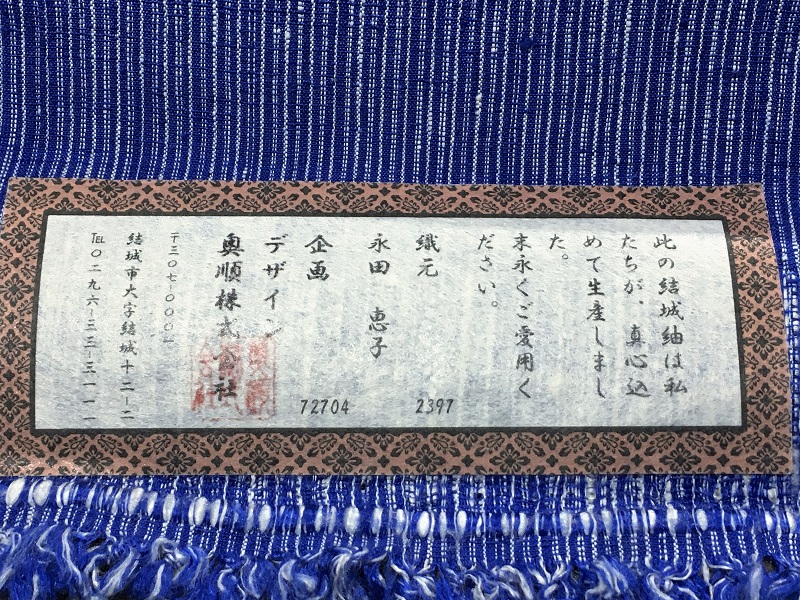 此の結城紬は私
たちが、真心込
めて生産しまし
た。
末永くご愛用く
ださい。
織元
2397
永田 恵子
企画
72704
デザイン
奥順株式会社
〒三〇七-〇〇〇一
結城市大字結城十二-二
℡〇二九六-三三-三一一一